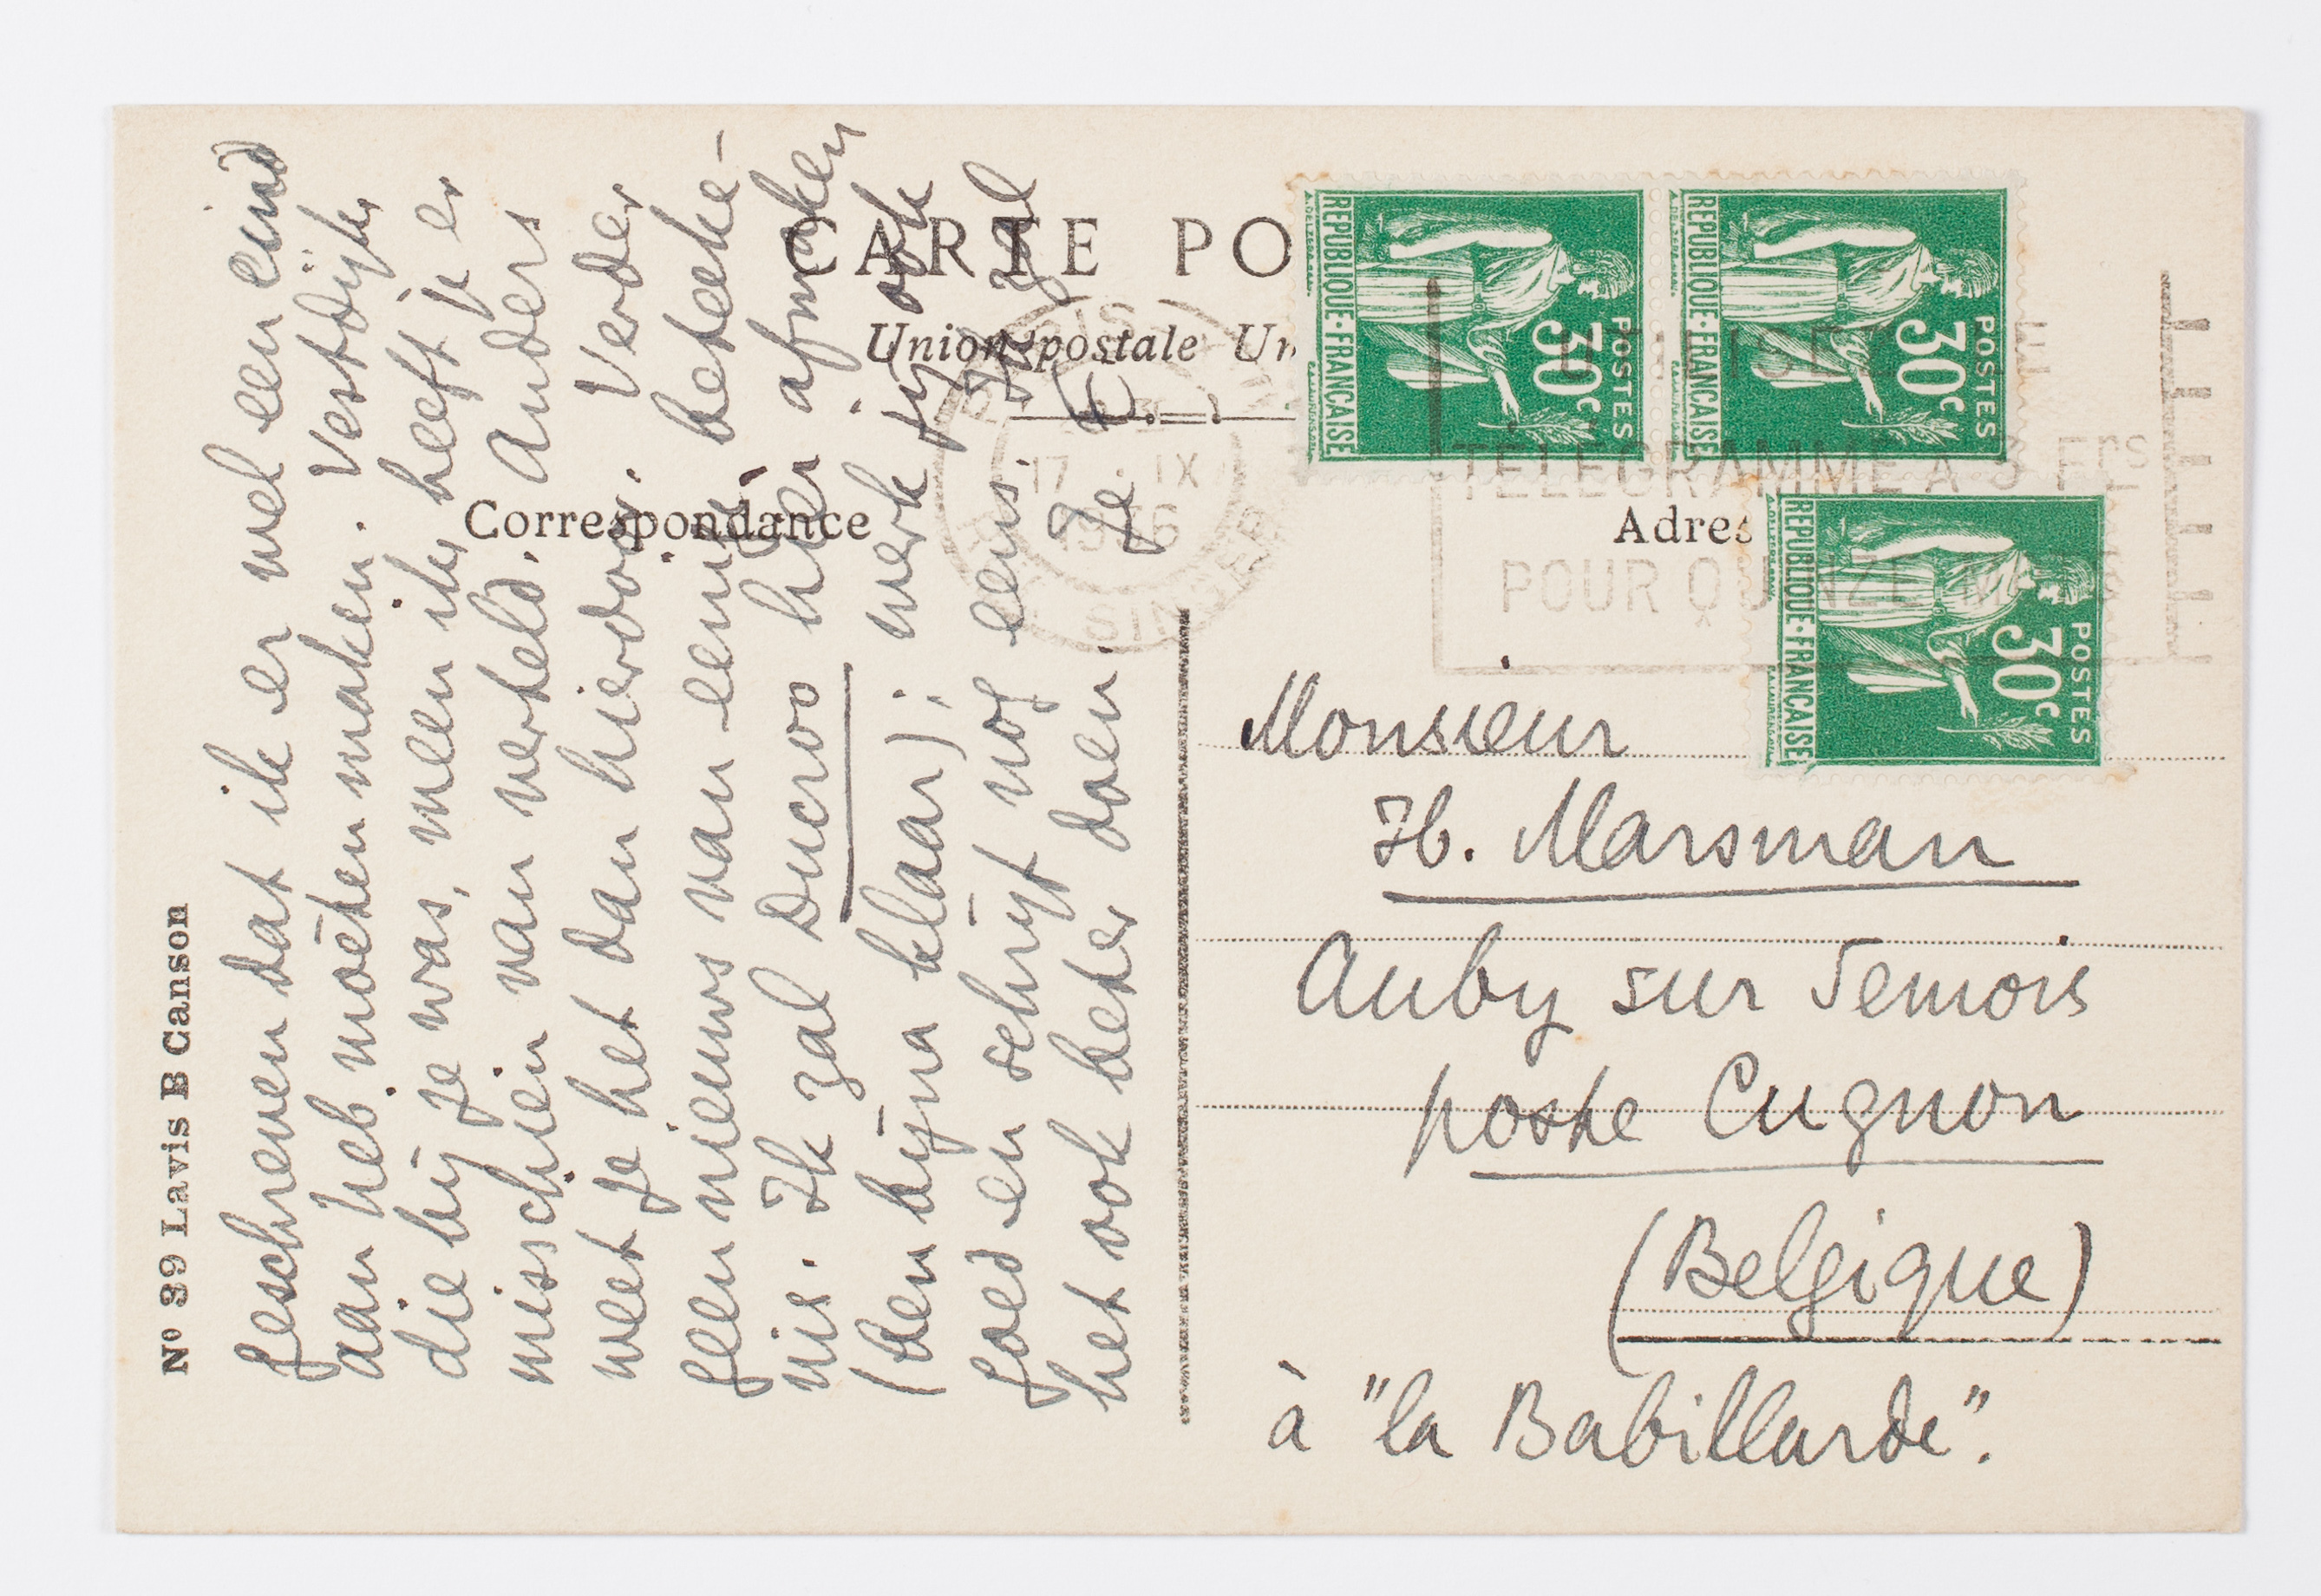 CARTE PO
Union postale Un
Correspondance
Adres
Nº 39 Lavis B Canson
geschreven dat ik er wel een eind
aan heb moeten maken. Vestdijk,
die bij je was, meen ik, heeft je er
misschien van verteld. Anders
weet je het dan hierdoor. Verder
geen nieuws van eenige beteeke-
nis. Ik zal Ducroo hier afmaken
(ben bijna klaar); werk jij ook
goed en schrijf nog eens. Ik zal
het ook beter doen. Je E.
REPUBLIQUE·FRANÇAISE
POSTES
30c
REPUBLIQUE·FRANÇAISE
POSTES
30c
REPUBLIQUE·FRANÇAISE
POSTES
30c
PARIS
17 · IX
1936
SINGER
UTILISEZ
TELEGRAMME A 3 Frs
POUR QUINZE MOTS
Monsieur
H. Marsman
Auby sur Semois
poste Cugnon
(Belgique)
à "la Babillarde".